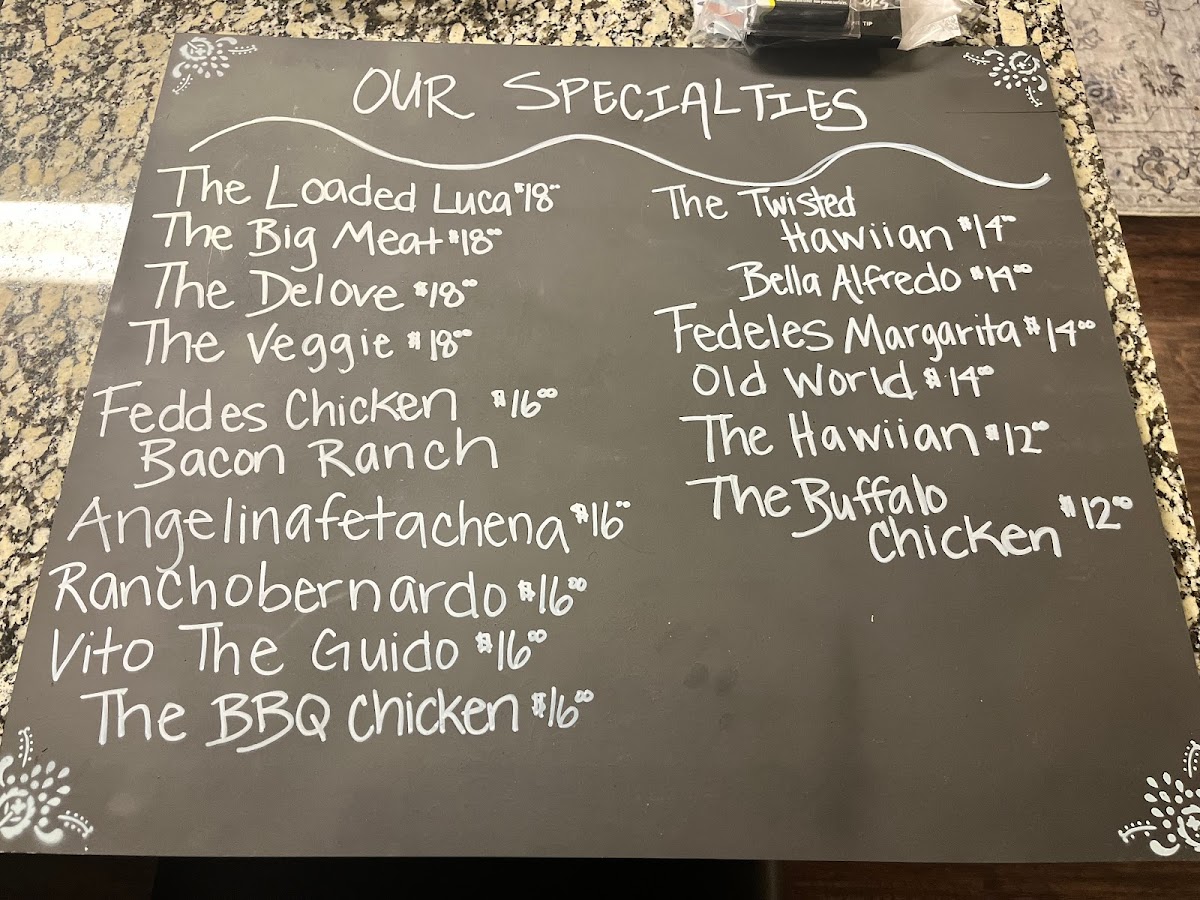 OUR SPECIALTIES
The Loaded Luca $18.00
The Big Meat $18.00
The Delove $18.00
The Veggie $18.00
Feddes Chicken $16.00
Bacon Ranch
Angelinafetachena $16.00
Ranchobernardo $16.00
Vito The Guido $16.00
The BBQ Chicken $16.00
The Twisted
Hawiian $14.00
Bella Alfredo $14.00
Fedeles Margarita $14.00
Old World $14.00
The Hawiian $12.00
The Buffalo
Chicken $12.00
TIP